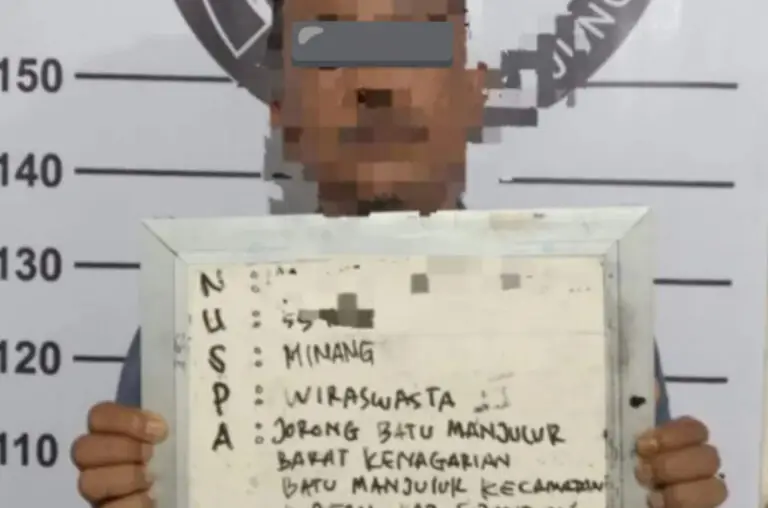 JUNG
150
140
130
120
110
N :
U : 55
S : MINANG
P : WIRASWASTA
A : JORONG BATU MANJULUR
BARAT KENAGARIAN
BATU MANJULUR KECAMATAN